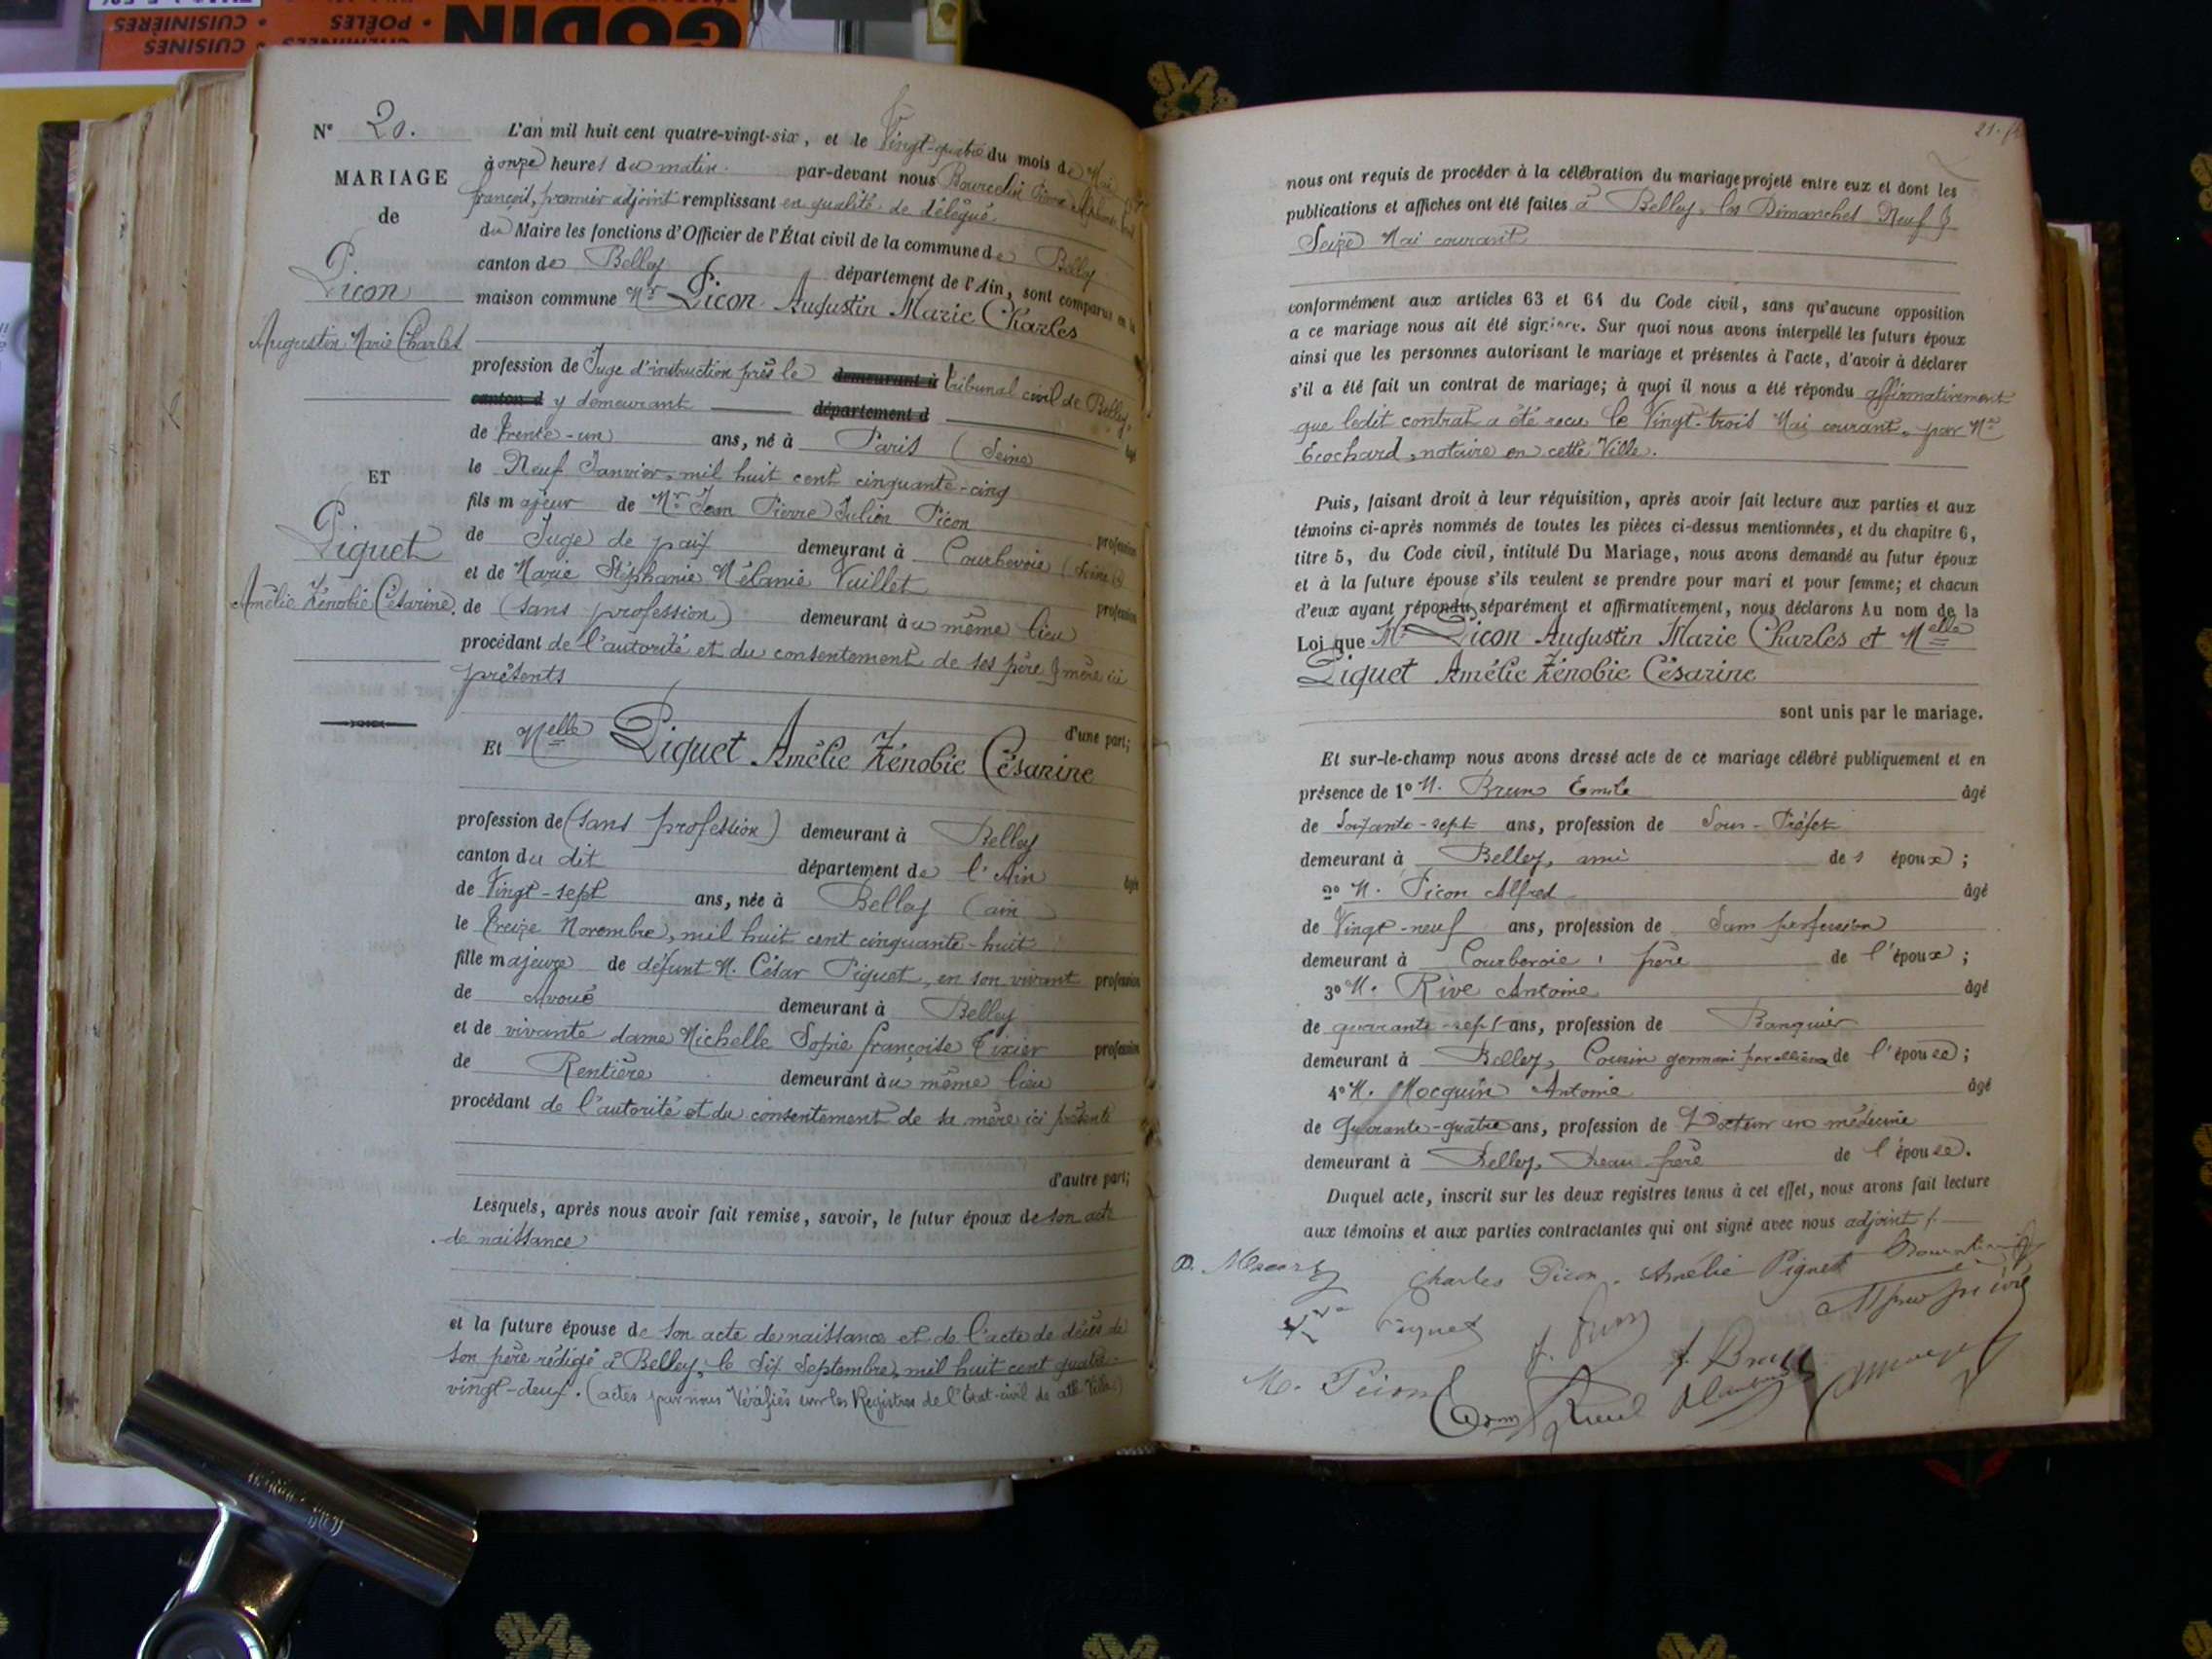 GODIN
CUISINES
POÊLES
CUISINIÈRES
N° 20.
MARIAGE
de
Picon
Augustin Marie Charles
ET
Piguet
Amélie Zénobie Césarine.
L'an mil huit cent quatre-vingt-six, et le Vingt-quatre du mois de Mai
à onze heures du matin. par-devant nous Pierre
françois, premier adjoint remplissant en qualité de délégué
du Maire les fonctions d'Officier de l'État civil de la commune de Belley
canton de Belley département de l'Ain, sont comparus en la
maison commune Mr Picon Augustin Marie Charles
profession de Juge d'instruction près le demeurant à tribunal civil de Belley,
canton d y demeurant département d
de trente-un ans, né à Paris (Seine) âgé
le Neuf Janvier, mil huit cent cinquante-cinq
fils majeur de Mr Jean Pierre Julien Picon
de Juge de paix demeurant à Courbevoie (Seine) profession
et de Marie Stéphanie Mélanie Vuillet
de (sans profession) demeurant au même lieu profession
procédant de l'autorité et du consentement de ses père & mère ici
présents
d'une part;
Et Melle Piguet Amélie Zénobie Césarine
profession de (sans profession) demeurant à Belley
canton du dit département de l'Ain
de Vingt-sept ans, née à Belley (ain) âgée
le treize Novembre, mil huit cent cinquante-huit
fille majeure de défunt M. César Piguet, en son vivant profession
de Avoué demeurant à Belley
et de vivante dame Michelle Sopie françoise Tixier profession
de Rentière demeurant au même lieu
procédant de l'autorité et du consentement de sa mère ici présente
d'autre part;
Lesquels, après nous avoir fait remise, savoir, le futur époux de son acte
de naissance
et la future épouse de son acte de naissance et de l'acte de décès de
son père rédigé à Belley, le dix Septembre, mil huit cent quatre-
vingt-deux. (actes par nous Vérifiés sur les Registres de l'Etat-civil de cette Ville)
nous ont requis de procéder à la célébration du mariage projeté entre eux et dont les
publications et affiches ont été faites à Belley, les Dimanches Neuf &
Seize Mai courant
conformément aux articles 63 et 64 du Code civil, sans qu'aucune opposition
a ce mariage nous ait été signifiée. Sur quoi nous avons interpellé les futurs époux
ainsi que les personnes autorisant le mariage et présentes à l'acte, d'avoir à déclarer
s'il a été fait un contrat de mariage; à quoi il nous a été répondu affirmativement
que ledit contrat a été reçu le Vingt-trois Mai courant, par Me
Ecochard, notaire en cette Ville.
Puis, faisant droit à leur réquisition, après avoir fait lecture aux parties et aux
témoins ci-après nommés de toutes les pièces ci-dessus mentionnées, et du chapitre 6,
titre 5, du Code civil, intitulé Du Mariage, nous avons demandé au futur époux
et à la future épouse s'ils veulent se prendre pour mari et pour femme; et chacun
d'eux ayant répondu séparément et affirmativement, nous déclarons Au nom de la
Loi que Mr Picon Augustin Marie Charles et Melle
Piguet Amélie Zénobie Césarine
sont unis par le mariage.
Et sur-le-champ nous avons dressé acte de ce mariage célébré publiquement et en
présence de 1° M. Brun Emile âgé
de Soixante-sept ans, profession de Sous-Préfet
demeurant à Belley, ami des époux;
2° M. Picon Alfred âgé
de Vingt-neuf ans, profession de Sans profession
demeurant à Courbevoie, frère de l'époux;
3° M. Rive Antoine âgé
de quarante-sept ans, profession de Banquier
demeurant à Belley, Cousin germain par alliance de l'épouse;
4° M. Mocquin Antoine âgé
de Quarante-quatre ans, profession de Docteur en médecine
demeurant à Belley, beau frère de l'épouse.
Duquel acte, inscrit sur les deux registres tenus à cet effet, nous avons fait lecture
aux témoins et aux parties contractantes qui ont signé avec nous adjoint
Charles Picon. Amélie Piguet
Piguet
M. Picon